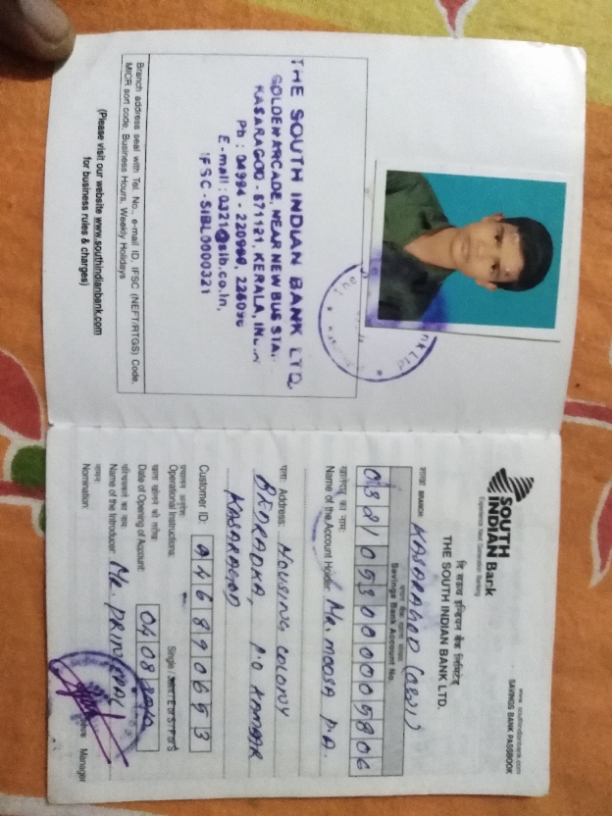 THE SOUTH INDIAN BANK LTD
GOLDEN ARCADE, NEAR NEW BUS STA
KASARAGOD - 671121, KERALA, IN
Ph : 04994 - 220
E-mail : 0321@sib.co.in,
IFSC - SIBL0000321
Branch address seal with Tel. No., e-mail ID, IFSC (NEFT/RTGS) Code,
MICR sort code, Business Hours, Weekly Holidays
(Please visit our website www.southindianbank.com
for business rules & charges)
www.southindianbank.com
SAVINGS BANK PASSBOOK
SOUTH
INDIAN Bank
Experience Next Generation Banking
दि साउथ इन्डियन बैंक लिमिटेड
THE SOUTH INDIAN BANK LTD.
शाखा BRANCH KASARAGOD
Savings Bank Account No.
0321053000005806
Name of the Account Holder Mr. MOOSA P.A.
पता Address: HOUSING COLONY
BEDRADKA, P.O KAMBAR
KASARAGOD
Customer ID: A46890653
Operational Instructions: Single
Date of Opening of Account: 04 08
Name of the Introducer: Mr. PRINCIPAL
नामन
Nomination:
Manager